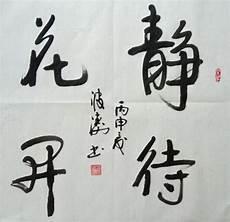 静待
花开
丙申岁
波涛书